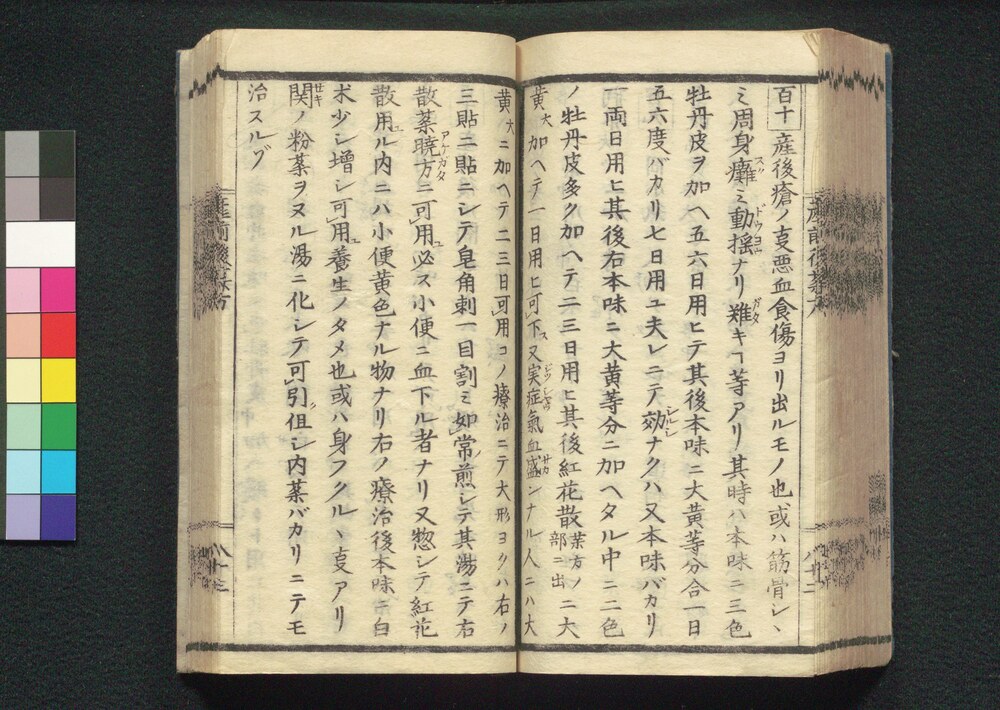 百十産後瘡ノ叓悪血食傷ヨリ出ルモノ也或ハ筋骨シヽ
ミ周身癱ミ動揺ナリ難キヿ等アリ其時ハ本味ニ三色
牡丹皮ヲ加ヘ五六日用ヒテ其後本味ニ大黄等分合一日
五六度バカリ七日用ユ夫レニテ効ナクハ又本味バカリ
両日用ヒ其後右本味ニ大黄等分ニ加ヘタル中ニ二色
ノ牡丹皮多ク加ヘテ二三日用ヒ其後紅花散薬方ノ部ニ出ニ大
黄大加ヘテ一日用ヒ可下ス又実症氣血盛ンナル人ニハ大
黄大ニ加ヘテ二三日可用コノ療治ニテ大形ヨクハ右ノ
三貼ニ貼ニシテ皂角刺一目割ミ如常煎シテ其湯ニテ右
散薬暁方ニ可用必ス小便ニ血下ル者ナリ又惣シテ紅花
散用ル内ニハ小便黄色ナル物ナリ右ノ療治後本味ニ白
朮少シ増シ可用養生ノタメ也或ハ身フクルヽ叓アリ
関ノ粉薬ヲヌル湯ニ化シテ可引但シ内薬バカリニテモ
治スルヿ